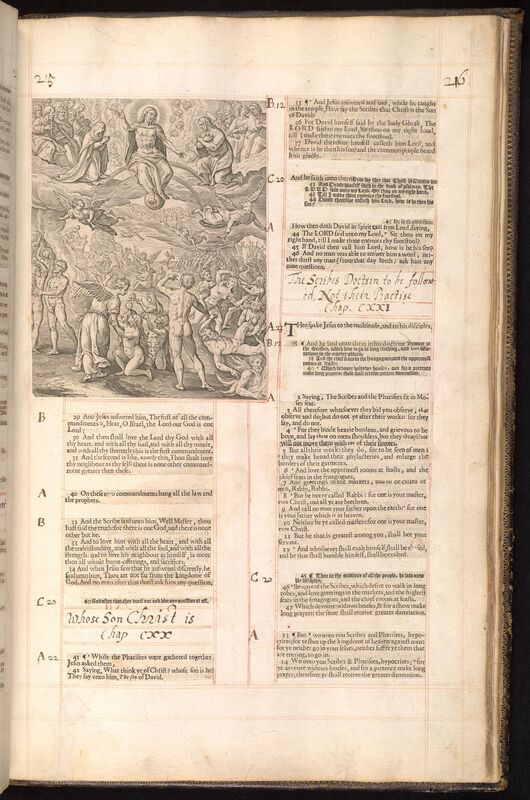 215
216
B
29 And Jesus answered him, The first of all the com-
mandments is, Hear, O Israel, the Lord our God is one
Lord:
30 And thou shalt love the Lord thy God with all
thy heart, and with all thy soul, and with all thy minde,
and with all thy strength: this is the first commandment.
31 And the second is like, namely this, Thou shalt love
thy neighbour as thy self: there is none other command-
ment greater then these.
A
40 On these two commandments hang all the law and
the prophets.
B
32 And the Scribe said unto him, Well Master, thou
hast said the truth: for there is one God, and there is none
other but he.
33 And to love him with all the heart, and with all
the understanding, and with all the soul, and with all the
strength, and to love his neighbour as himself, is more
then all whole burnt-offerings, and sacrifices.
34 And when Jesus saw that he answered discreetly, he
said unto him, Thou art not far from the kingdome of
God. And no man after that durst ask him any question.
C 20
40 And after that, they durst not ask him any question at all.
Whose Son Christ is
Chap CXX
A 22
41 ¶ While the Pharisees were gathered together
Jesus asked them,
42 Saying, What think ye of Christ? whose son is he?
They say unto him, The son of David.
B 12
35 ¶ And Jesus answered and said, while he taught
in the temple, How say the Scribes that Christ is the Son
of David?
36 For David himself said by the holy Ghost, The
LORD said to my Lord, Sit thou on my right hand,
till I make thine enemies thy footstool.
37 David therefore himself calleth him Lord, and
whence is he then his son? and the common people heard
him gladly.
C 20
And he saith unto them, How say they that Christ is Davids son
42 And David himself saith in the book of psalmes, The
LORD said unto my Lord, Sit thou on my right hand,
43 Till I make thine enemies thy footstool.
44 David therefore calleth him Lord, how is he then his
son?
A
43 He saith unto them
How then doth David in spirit call him Lord, saying,
44 The LORD said unto my Lord, Sit thou on my
right hand, till I make thine enemies thy footstool?
45 If David then call him Lord, how is he his son?
46 And no man was able to answer him a word, nei-
ther durst any man (from that day forth) ask him any
moe questions.
The Scribes Doctrin to be follow-
ed, Not their Practise
Chap. CXXI
A 23
THen spake Jesus to the multitude, and to his disciples,
B 12
38 ¶ And he said unto them in his doctrine, Beware of
the Scribes, which love to go in long clothing, and love salu-
tations in the market-places,
39 And the chief seats in the synagogues, and the uppermost
rooms at feasts:
40 Which devoure widows houses, and for a pretence
make long prayers: these shall receive greater damnation.
A
2 Saying, The Scribes and the Pharisees sit in Mo-
ses seat.
3 All therefore whatsoever they bid you observe, that
observe and do; but do not ye after their works: for they
say, and do not.
4 For they binde heavie burdens, and grievous to be
born, and lay them on mens shoulders, but they themselves
will not move them with one of their fingers.
5 But all their works they do, for to be seen of men:
they make broad their phylacteries, and enlarge the
borders of their garments,
6 And love the uppermost rooms at feasts, and the
chief seats in the synagogues,
7 And greetings in the markets, and to be called of
men, Rabbi, Rabbi.
8 But be not ye called Rabbi: for one is your master,
even Christ, and all ye are brethren.
9 And call no man your father upon the earth: for one
is your father which is in heaven.
10 Neither be ye called masters: for one is your master,
even Christ.
11 But he that is greatest among you, shall be your
servant.
12 And whosoever shall exalt himself shall be abased,
and he that shall humble himself, shall be exalted.
C 20
45 ¶ Then in the audience of all the people, he said unto
his disciples,
46 Beware of the Scribes, which desire to walk in long
robes, and love greetings in the markets, and the highest
seats in the synagogues, and the chief rooms at feasts:
47 Which devoure widows houses, & for a shew make
long prayers: the same shall receive greater damnation.
A
13 ¶ But wo unto you Scribes and Pharisees, hypo-
crites; for ye shut up the kingdome of heaven against men:
for ye neither go in your selves, neither suffer ye them that
are entring, to go in.
14 Wo unto you Scribes & Pharisees, hypocrites; for
ye devoure widows houses, and for a pretence make long
prayer; therefore ye shall receive the greater damnation.